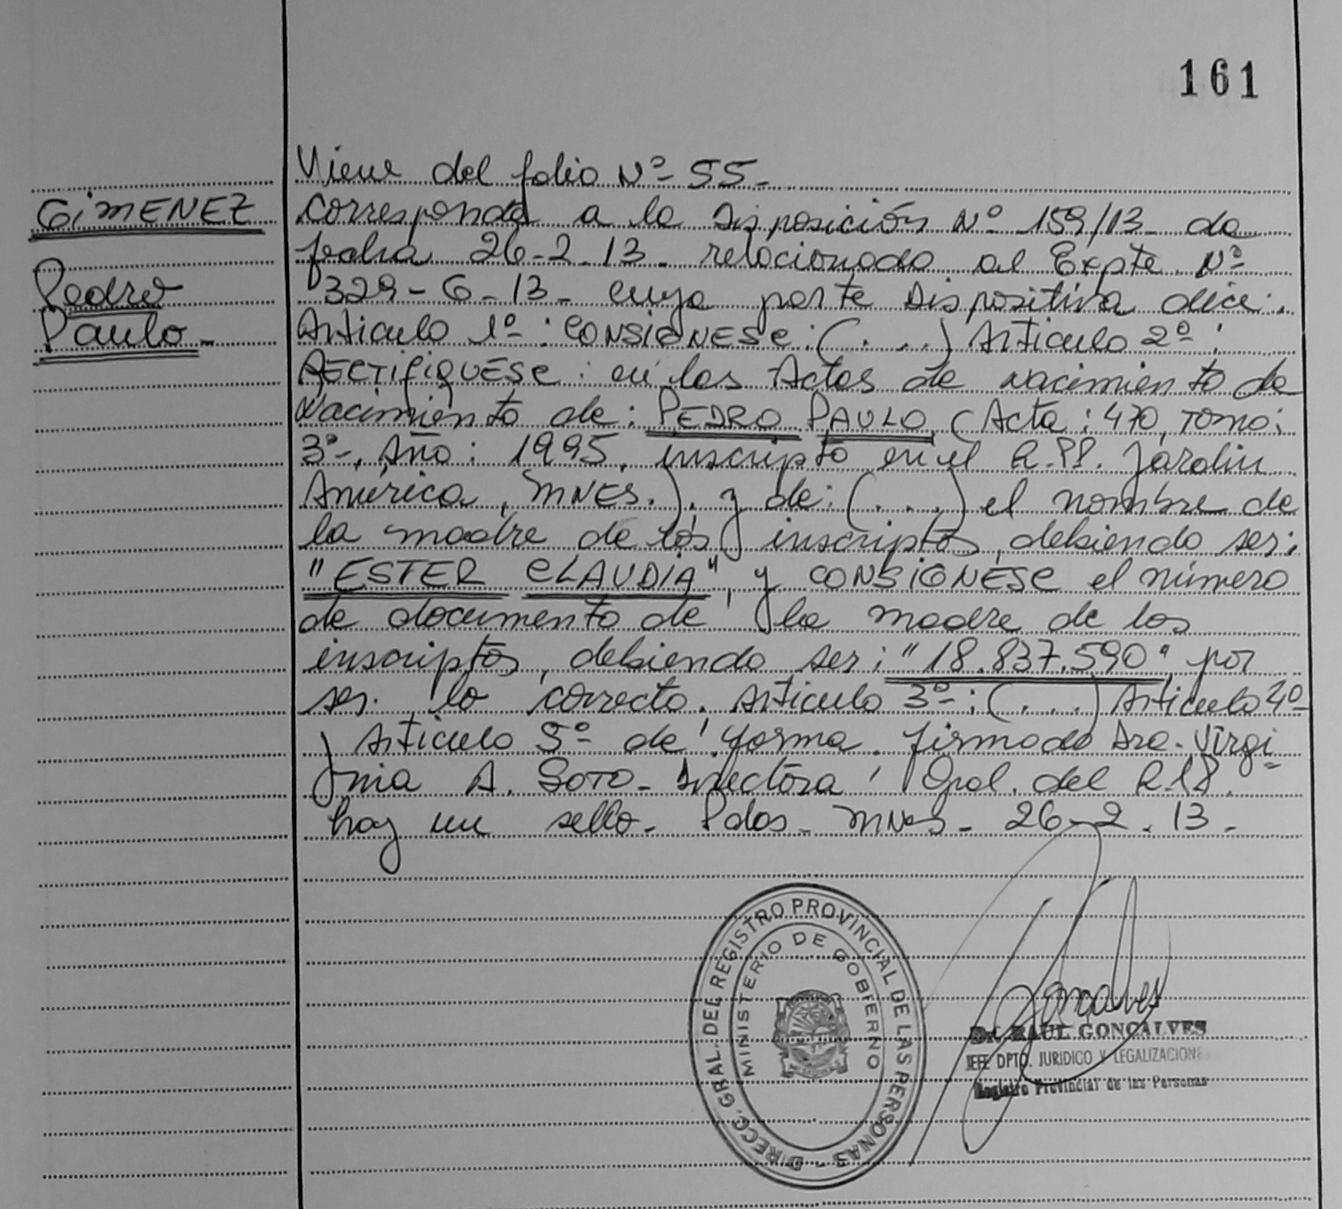 161
Viene del folio Nº 55-
GIMENEZ
Pedro
Paulo-
Corresponde a la Disposición Nº 159/13 de
fecha 26-2-13- relacionado al Expte Nº
329-G-13- cuya parte Dispositiva dice:
Articulo 1º: CONSIGNESE:(....) Articulo 2º:
RECTIFIQUESE: en las Actas de nacimiento de
Nacimiento de: PEDRO PAULO (Acta: 470, Tomo:
3º, Año: 1995, inscripto en el R.PP. Jardin
América, MNES.), y de: (....) el nombre de
la madre de los inscriptos, debiendo ser:
"ESTER CLAUDIA", y CONSIGNESE el número
de documento de la madre de los
inscriptos, debiendo ser: "18.837.590" por
ser lo correcto. Articulo 3º:(....) Articulo 4º
y Articulo 5º de forma. firmado Dra. Virgi
nia A. SOTO- Directora Gral. del R.PP.
hay un sello- Pdas- MNES- 26-2-13-
DIRECC. GRAL. DEL REGISTRO PROVINCIAL DE LAS PERSONAS -
MINISTERIO DE GOBIERNO
Goncalves
Dr. RAUL GONCALVES
JEFE DPTO. JURIDICO Y LEGALIZACIONES
Registro Provincial de las Personas